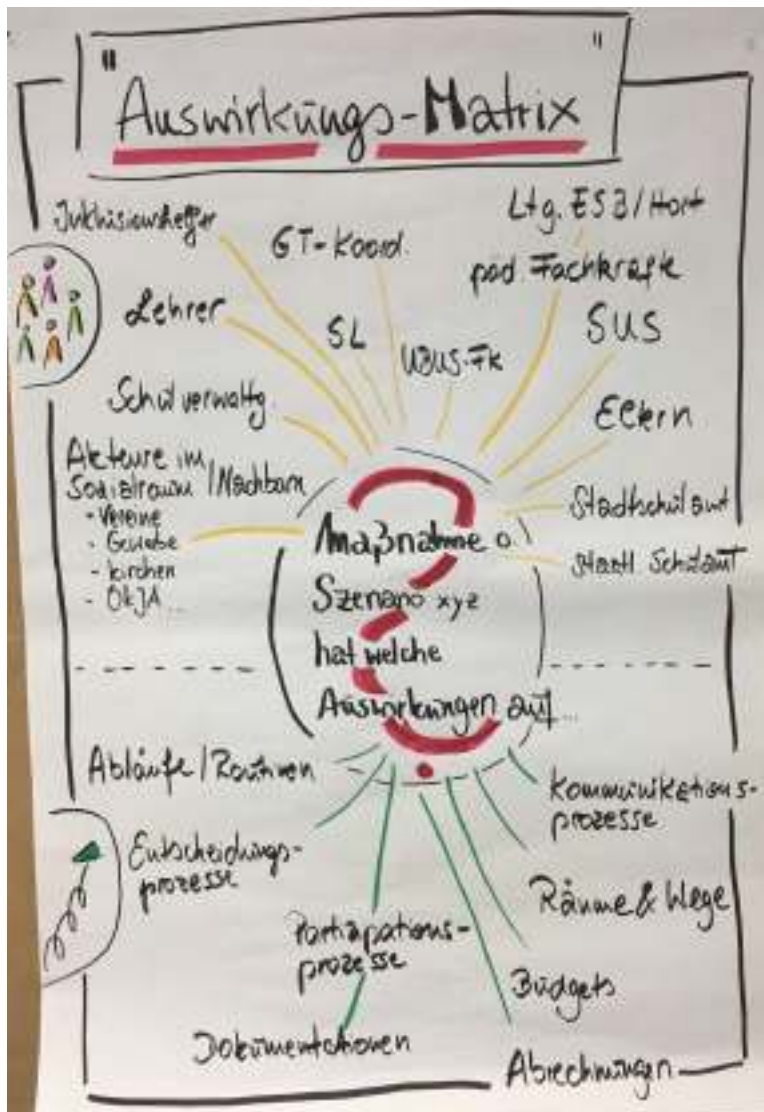 " "
Auswirkungs-Matrix
Inklusionshelfer
GT-Koord.
Ltg. ESB/Hort
päd. Fachkräfte
Lehrer
SL
UBUS-FK
SUS
Schulverwaltg.
Eltern
Akteure im
Sozialraum/Nachbarn
- Vereine
- Gewerbe
- Kirchen
- OKJA...
Stadtschulamt
Staatl. Schulamt
Maßnahme o.
Szenario xyz
hat welche
Auswirkungen auf...
?
Abläufe/Routinen
Kommunikations-
prozesse
Entscheidungs-
prozesse
Räume & Wege
Partizipations-
prozesse
Budgets
Dokumentationen
Abrechnungen